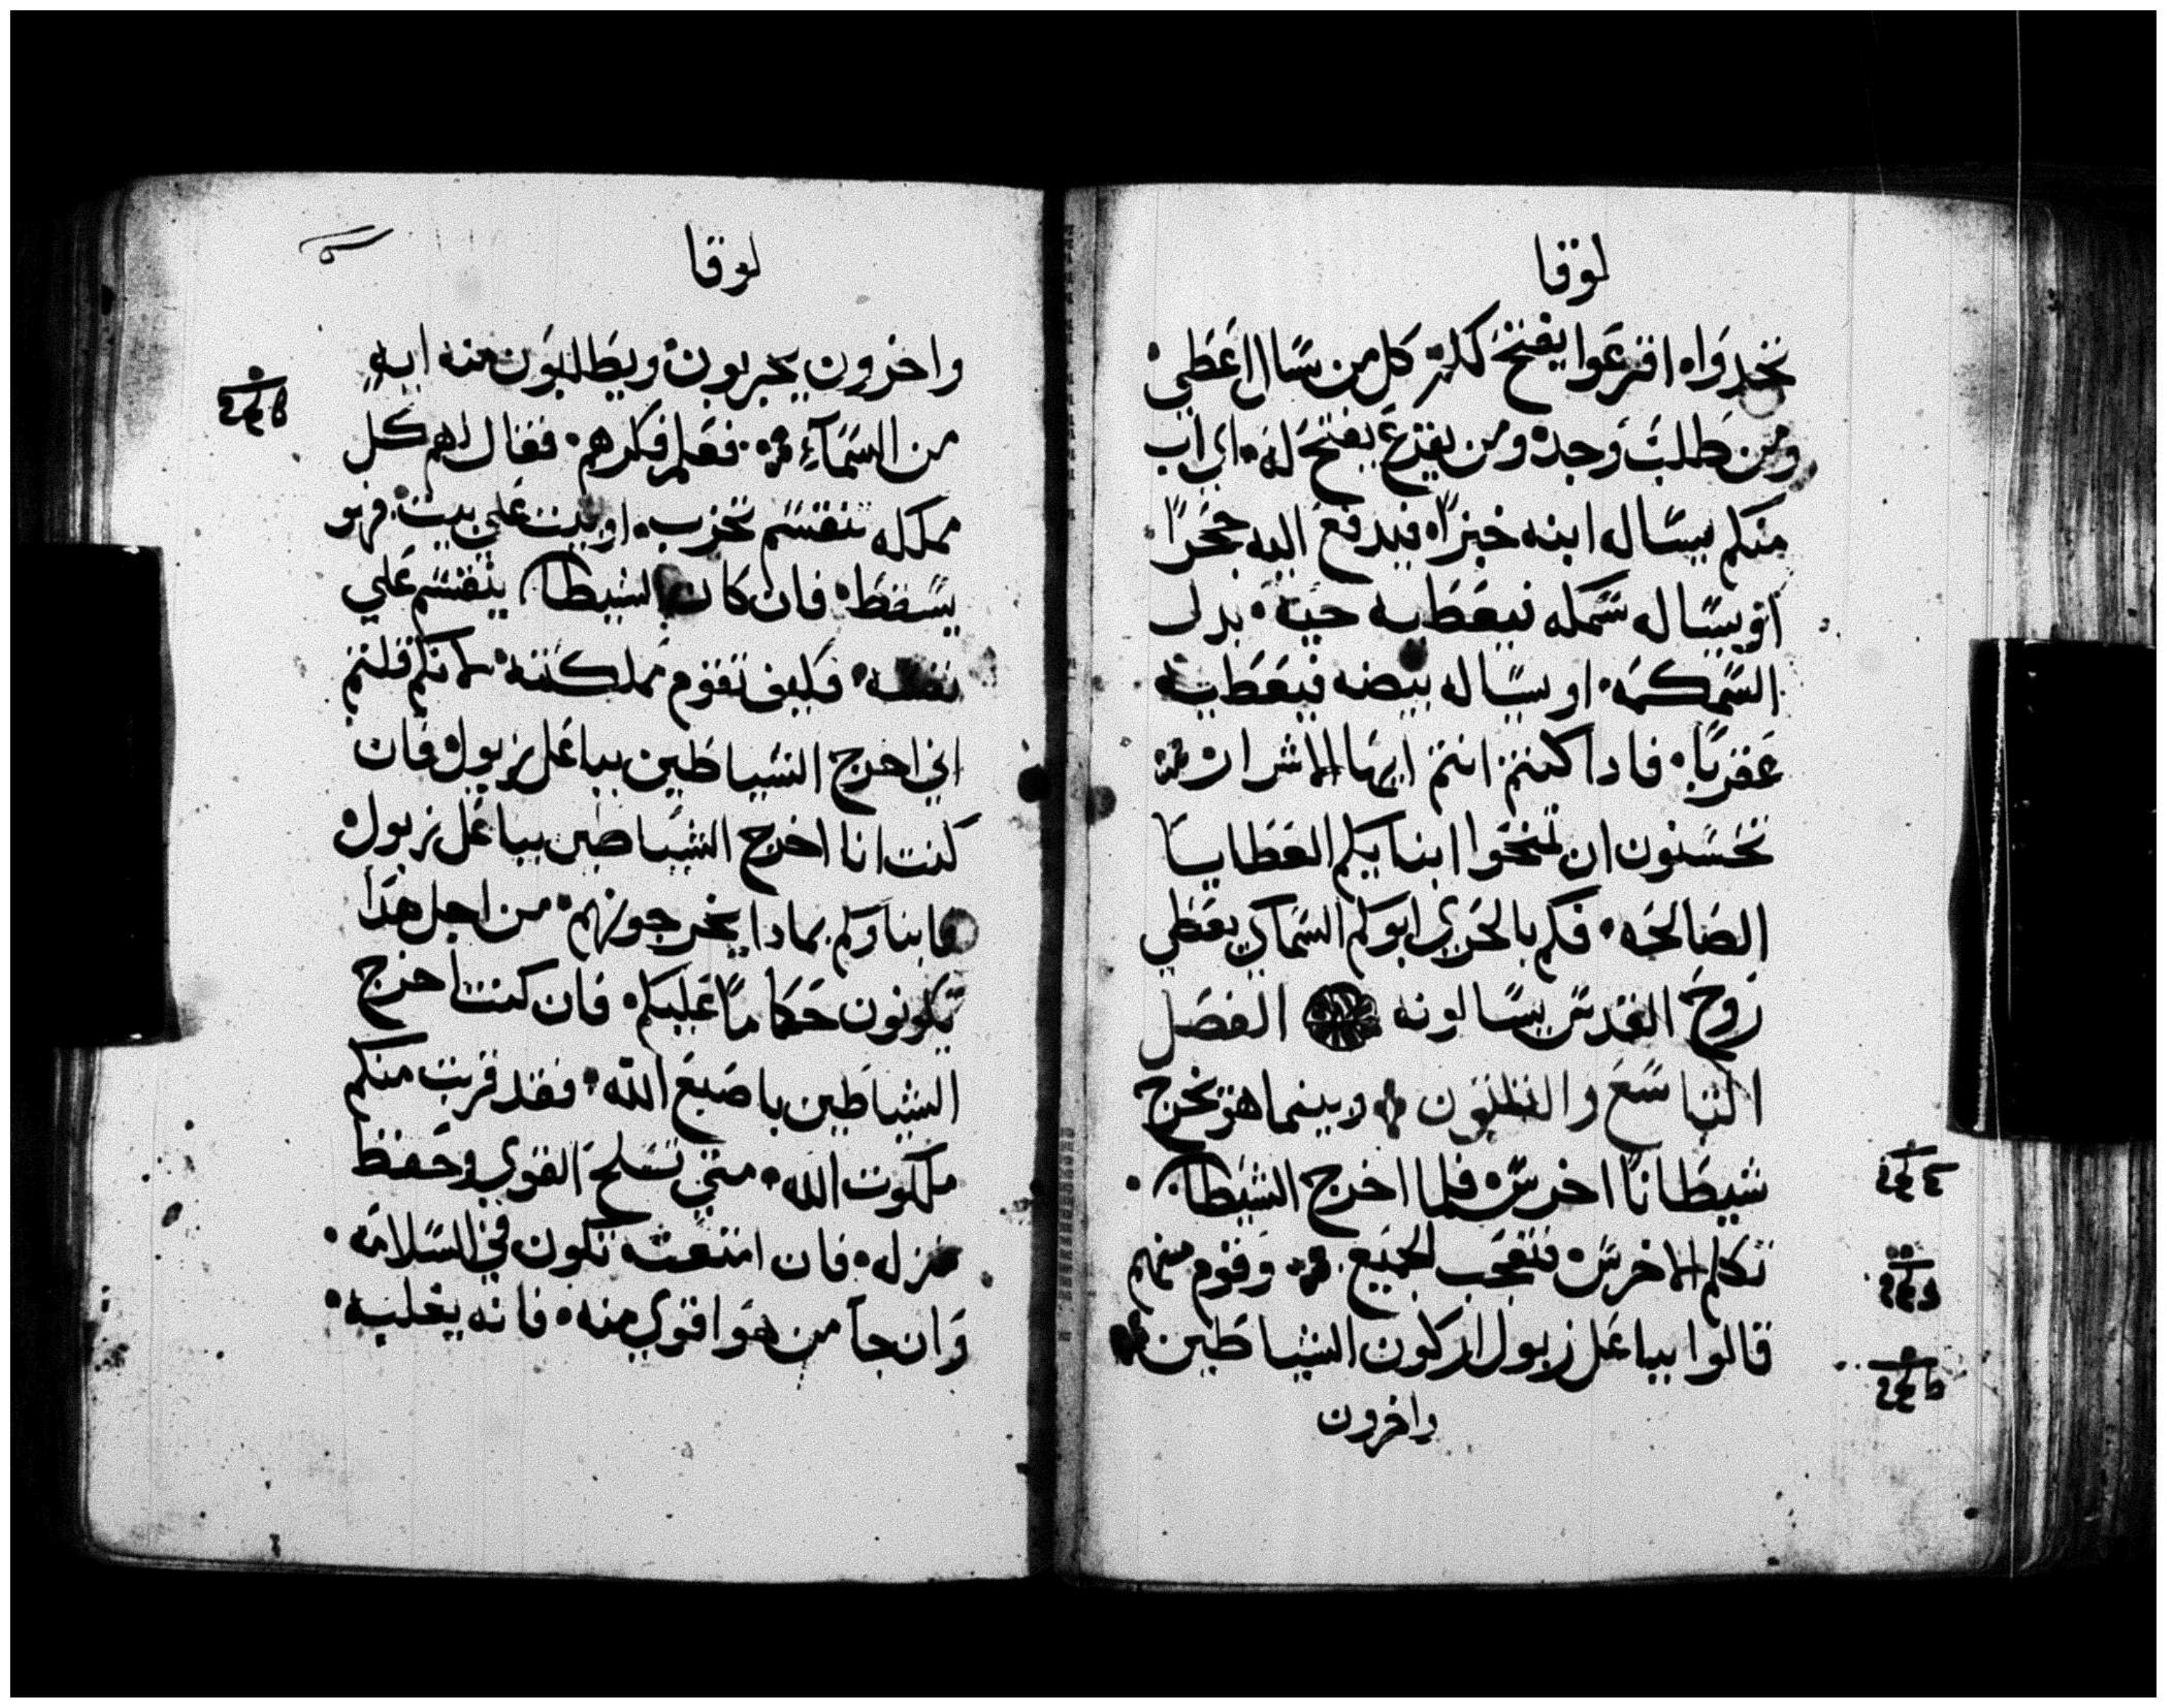 لوقا
تجدواه اقرعوا يفتح لكم كل من سال اعطي
ومن طلب وجد ومن يقرع يفتح له اي اب
منكم يساله ابنه خبزاه فيدفع اليه حجرا
او يساله سمكه فيعطيه حيه بدل
السمكه او يساله بيضه فيعطيه
عقربا فادا كنتم انتم ايها الاشرار
تحسنون ان تمنحوا ابنايكم العطايا
الصالحه فكم بالحري ابوكم السماي يعطي
روح القدس يسالونه الفصل
التاسع والثلثون وبينما هو يخرج
شيطانا اخرس فلما اخرج الشيطان
تكلم الاخرس فتعجب الجميع وقوم منهم
قالوا بباعل زبول اركون الشياطين
واخرون
لوقا
واخرون يجربون ويطلبون منه ايه
من السماء فعلم فكرهم فقال لهم كل
مملكه تنقسم تخرب او بيت علي بيت فهو
يسقط فان كان الشيطان ينقسم علي
نفسه فكيف تقوم مملكته لانكم قلتم
اني اخرج الشياطين بباعل زبول فان
كنت انا اخرج الشياطين بباعل زبول
فابناوكم بمادا يخرجونهم من اجل هدا
يكونون حكاما عليكم فان كنت اخرج
الشياطين باصبع الله فقد قربت منكم
ملكوت الله متي تسلح القوي وحفظ
منزله فان امتعته تكون في السلامه
وان جا من هو اقوي منه فانه يغلبه